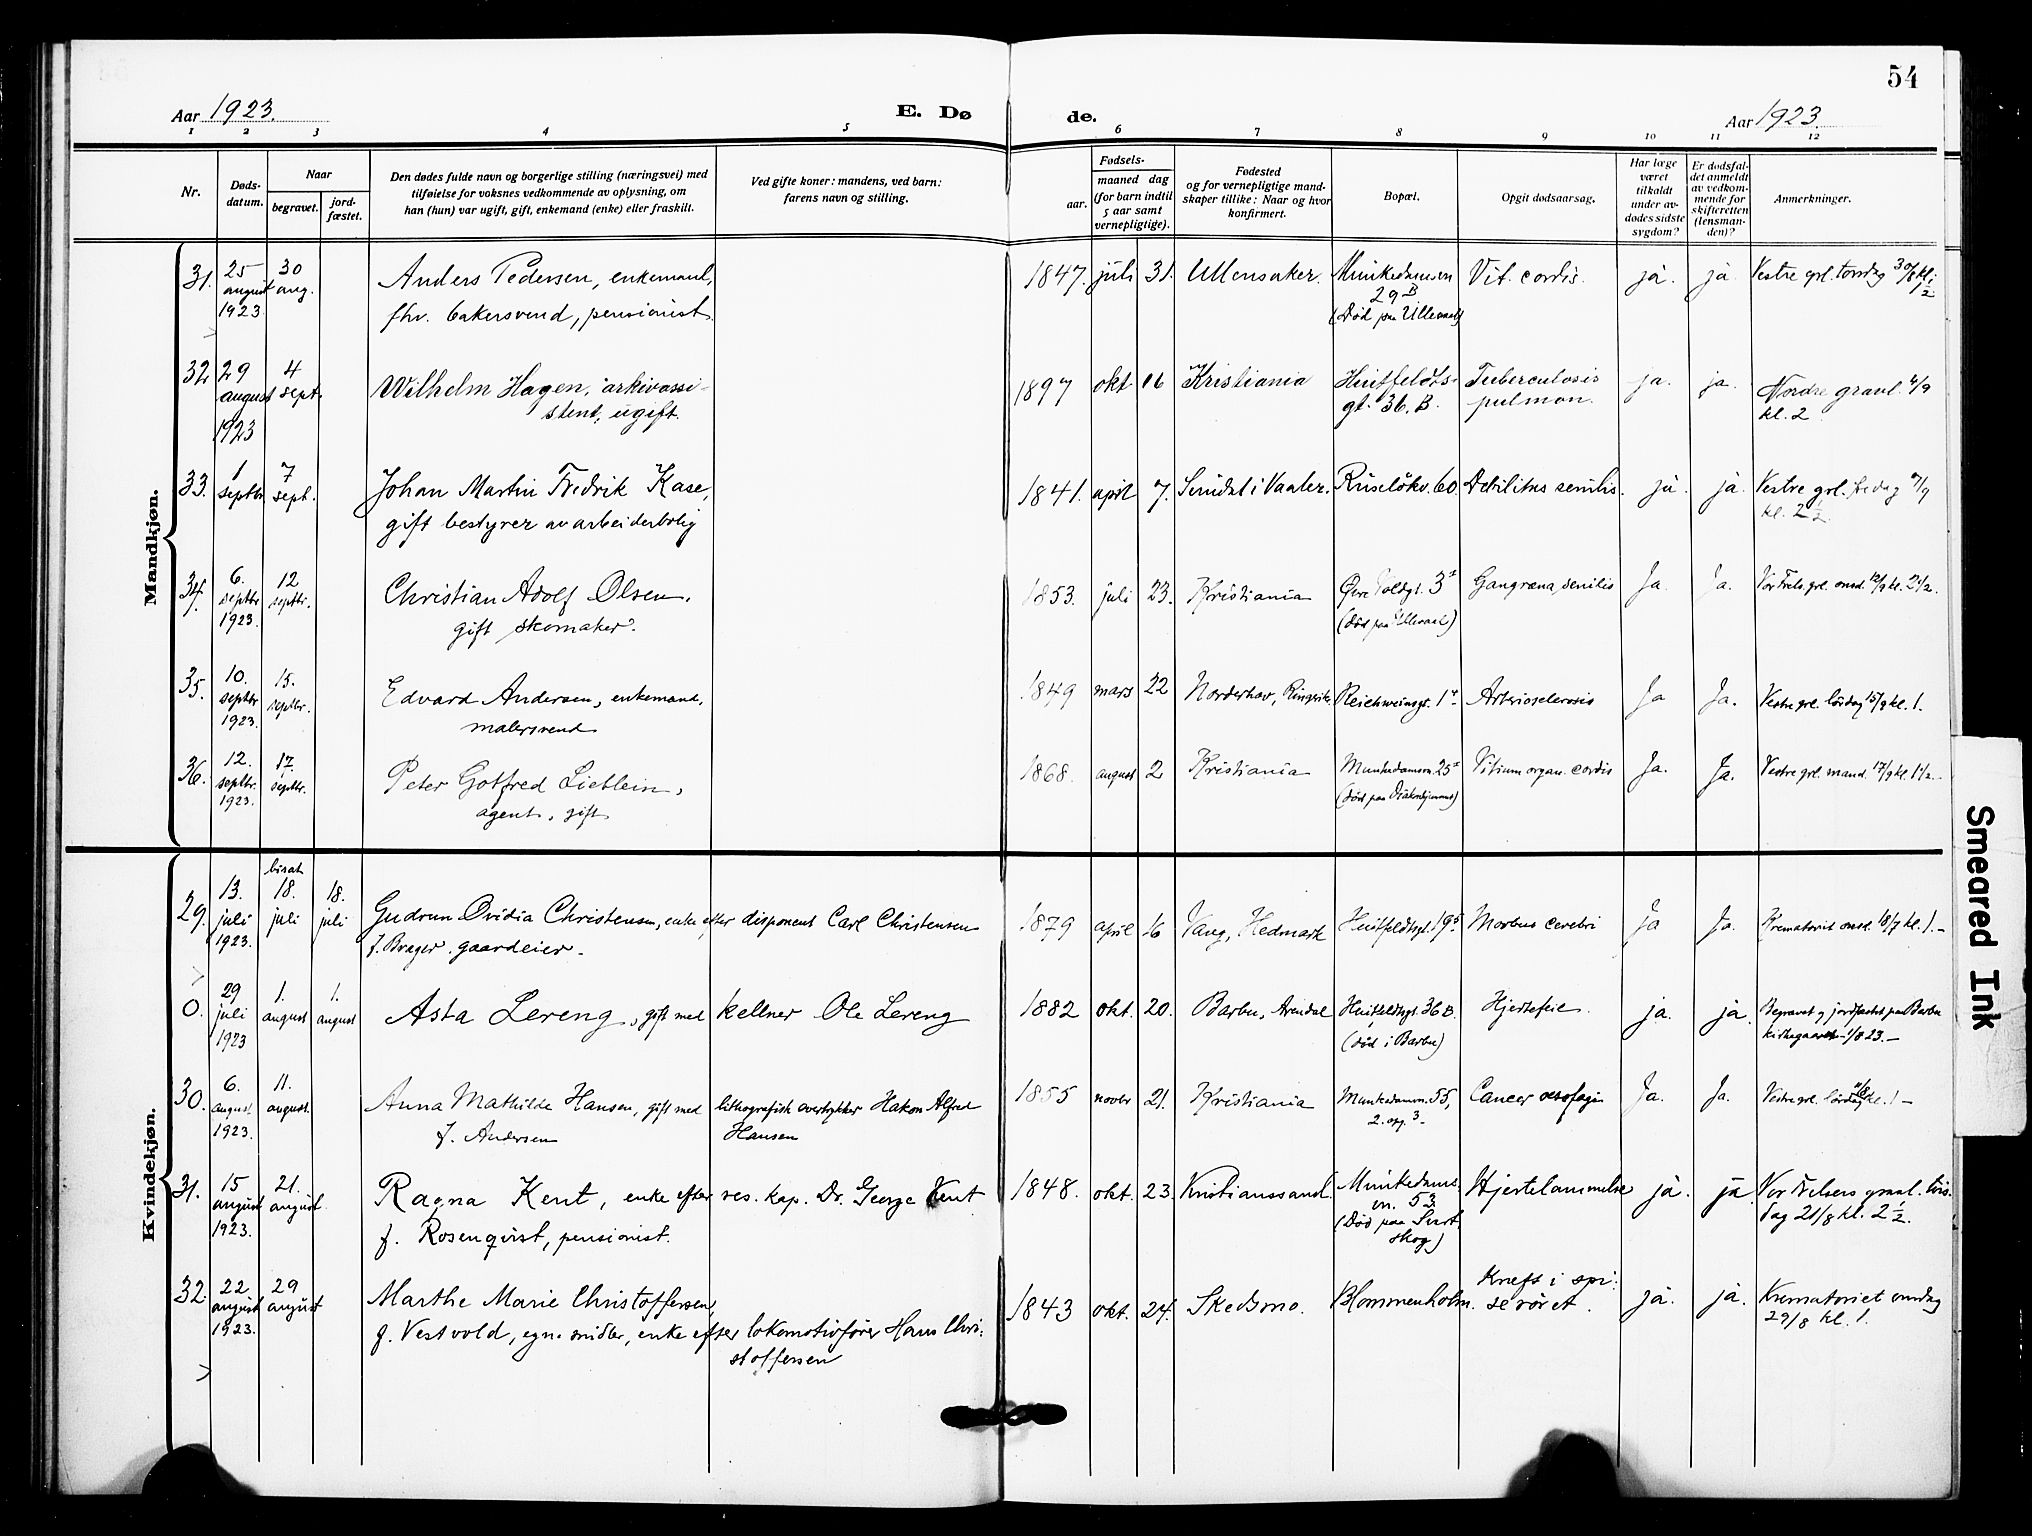 54
Aar 1923.
E. Dø
de.
Aar 1923.
1 2 3 4 5 6 7 8 9 10 11 12
Nr.
Døds-
datum.
Naar
begravet.
jord-
fæstet.
Den dødes fulde navn og borgerlige stilling (næringsvei) med
tilføielse for voksnes vedkommende av oplysning, om
han (hun) var ugift, gift, enkemand (enke) eller fraskilt.
Ved gifte koner: mandens, ved barn:
farens navn og stilling.
Fødsels-
aar.
maaned dag
(for barn indtil
5 aar samt
vernepligtige).
Fødested
og for vernepligtige mand-
skaper tillike: Naar og hvor
konfirmert.
Bopæl.
Opgit dødsaarsag.
Har læge
været
tilkaldt
under av-
dødes sidste
sygdom?
Er dødsfal-
det anmeldt
av vedkom-
mende for
skifteretten
(lensman-
den)?
Anmerkninger.
Mandkjøn.
31. 25 august 1923 30 aug.
Anders Pedersen, enkemand,
fhv. bakersvend, pensionist.
1847. juli 31. Ullensaker.
Munkedamsvn
29 B
(Død paa Ullevaal)
Vit. cordis. ja. ja.
Vestre grl. torsdag 30/8 kl. 1 1/2
32 29 august 1923 4 sept.
Wilhelm Hagen, arkivassi-
stent, ugift.
1897 okt 16 Kristiania
Huitfeldts-
gt. 36. B.
Tuberculosis
pulmon.
ja. ja.
Nordre gravl. 4/9
kl. 2
33. 1 septbr 7 sept.
Johan Martin Fredrik Kase,
gift bestyrer av arbeiderbolig
1841. april 7. Svindal i Vaaler. Ruseløkv. 60. Debilitas senilis. ja. ja.
Vestre grl. fredag 7/9
kl. 2 1/2.
34. 6. septbr 1923. 12 septbr.
Christian Adolf Olsen,
gift skomaker.
1853. juli 23. Kristiania
Øvre Voldgt. 3
(død paa Ullevaal)
Gangræna senilis Ja. Ja.
Vor Frels. grl. onsd. 12/9 kl. 2 1/2.
35. 10. septbr 1923. 15. septbr.
Edvard Andersen, enkemand,
malersvend
1849 mars 22 Norderhov, Ringerike Reichweinsgt. 1 Arteriosclerosis Ja Ja.
Vestre grl. lørdag 15/9 kl. 1.
36. 12. septbr. 1923. 17. septbr.
Peter Gotfred Lieblein,
agent, gift
1868. august 2 Kristiania
Munkedamsvn. 25
(død paa Diakonhjemmet)
Vitium organ. cordis Ja. Ja.
Vestre grl. mand. 17/9 kl. 1 1/2.
Kvindekjøn.
29. 13. juli 1923. bisat 18. juli 18. juli
Gudrun Ovidia Christensen, enke efter disponent Carl Christensen
f. Brager. gaardeier.
1879 april 16 Vang, Hedmark Huitfeldtsgt. 19 Morbus cerebri ja Ja.
Krematoriet onsd. 18/7 kl. 1.-
0. 29 juli 1923 1. august 1. august
Asta Lereng, gift med kellner Ole Lereng
1882 okt. 20. Barbu, Arendal
Huitfeldtsgt. 36 B.
(død i Barbu)
Hjertefeil ja. ja.
Begravet og jordfæstet paa Barbu
kirkegaard 1/8 23.-
30. 6. august 1923. 11. august.
Anna Mathilde Hansen, gift med lithografisk overtrykker Hakon Alfred
f. Andersen Hansen
1855 novbr 21. Kristiania
Munkedamsvn. 55,
2. opg. 3.
Cancer oesofagi Ja. Ja.
Vestre grl. lørdag 11/8 kl. 1 -
31. 15 august 1923. 21. august.
Ragna Kent, enke efter res. kap. Dr. George Kent
f. Rosenqvist, pensionist.
1848. okt. 23. Kristianssand.
Munkedams
vn. 53.
(Død paa
skog)
Hjertelammelse ja. ja
Vor Frelsers gravl. tirs.
dag 21/8 kl. 2 1/2.
32. 22. august 1923. 29 august
Marthe Marie Christoffersen,
f. Vestvold, egne midler, enke efter lokomotivfører Hans Chri-
stoffersen
1843 okt. 24. Skedsmo. Blommenholm.
Kreft i spi-
serøret.
ja. ja.
Krematoriet onsdag
29/8 kl. 1.
Smeared Ink